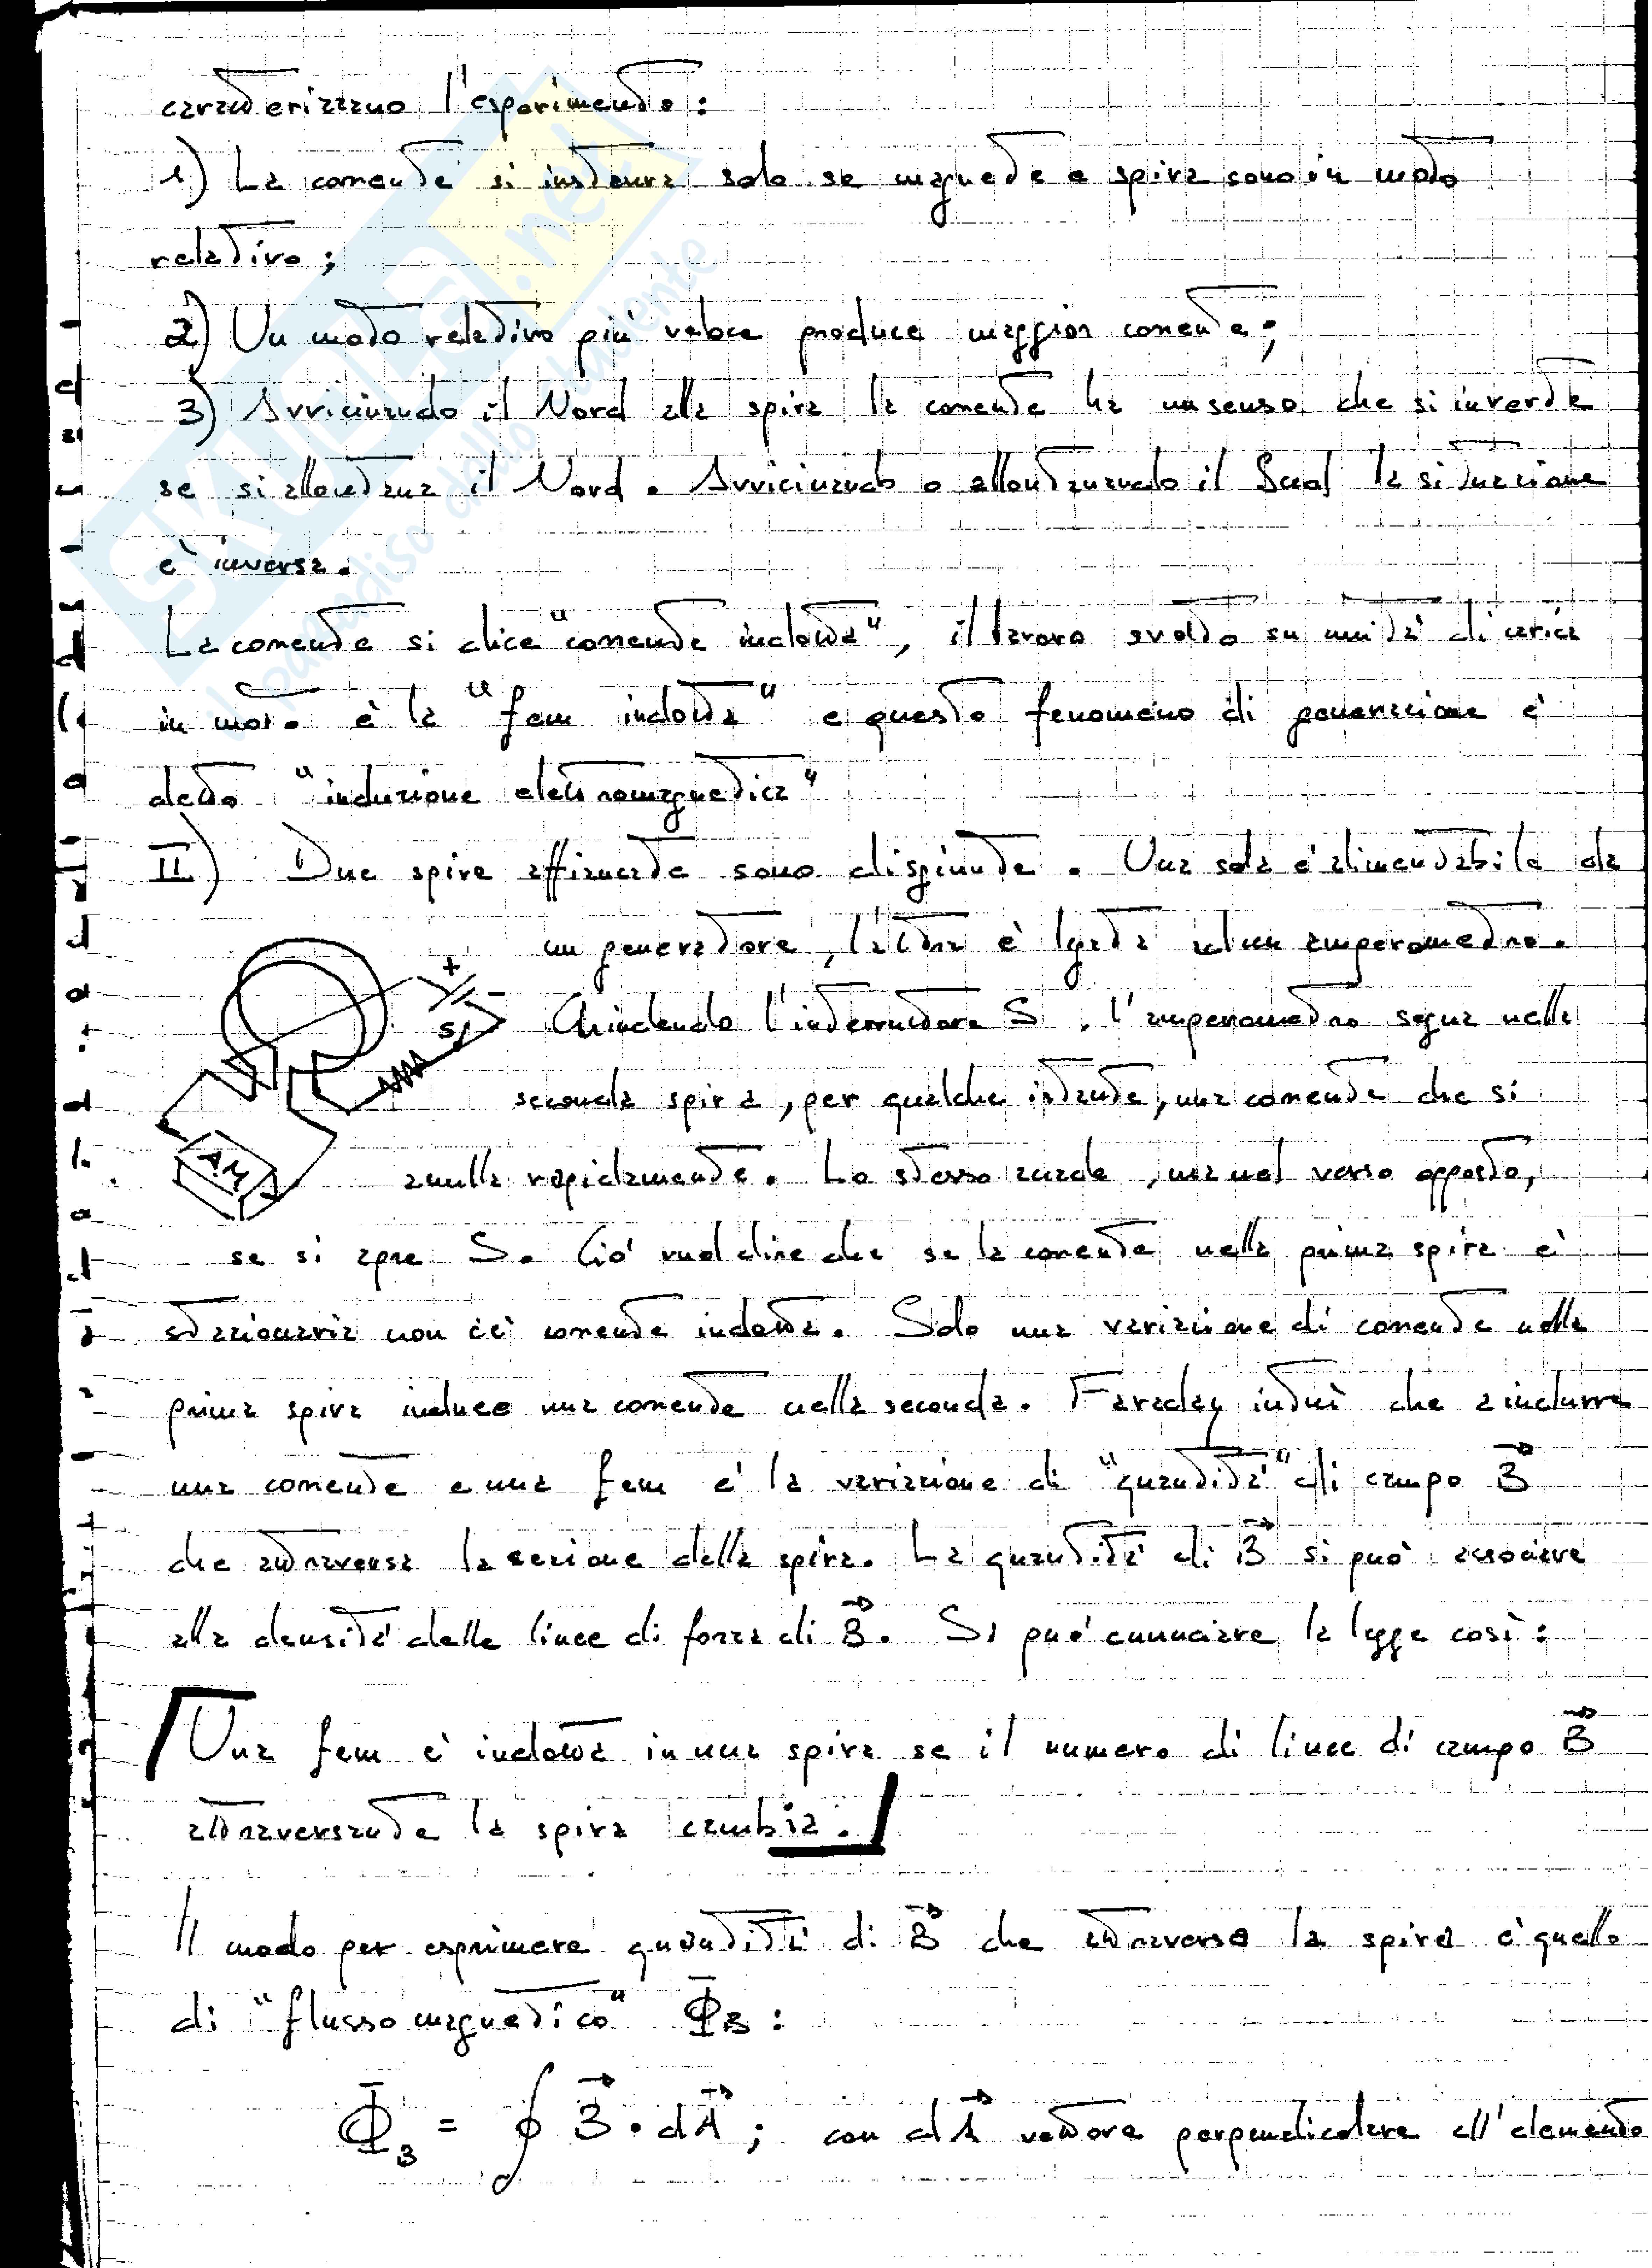 caratterizzano l'esperimento:
1) La corrente si instaura solo se magnete e spira sono in moto
relativo;
2) Un moto relativo più veloce produce maggior corrente;
3) Avvicinando il Nord alla spira la corrente ha un senso che si inverte
se si allontana il Nord. Avvicinando o allontanando il Sud la situazione
è inversa.
La corrente si dice "corrente indotta", il lavoro svolto su unità di carica
in moto è la "fem indotta" e questo fenomeno di generazione è
detto "induzione elettromagnetica"
II) Due spire affiancate sono disgiunte. Una sola è alimentabile da
un generatore, l'altra è legata ad un amperometro.
+ -
S
Chiudendo l'interruttore S, l'amperometro segna nella
seconda spira, per qualche istante, una corrente che si
AM
annulla rapidamente. Lo stesso accade, ma nel verso opposto,
se si apre S. Ciò vuol dire che se la corrente nella prima spira è
stazionaria non c'è corrente indotta. Solo una variazione di corrente nella
prima spira induce una corrente nella seconda. Faraday intuì che a indurre
una corrente e una fem è la variazione di "quantità" di campo B⃗
che attraversa la sezione della spira. La quantità di B⃗ si può associare
alla densità delle linee di forza di B⃗. Si può enunciare la legge così:
Una fem è indotta in una spira se il numero di linee di campo B⃗
attraversante la spira cambia.
Il modo per esprimere quantità di B⃗ che attraversa la spira è quello
di "flusso magnetico" Φ_B:
Φ_B = ∮ B⃗ · dA⃗ ; con dA⃗ vettore perpendicolare all'elemento
SKUOLA.net
il paradiso dello studente